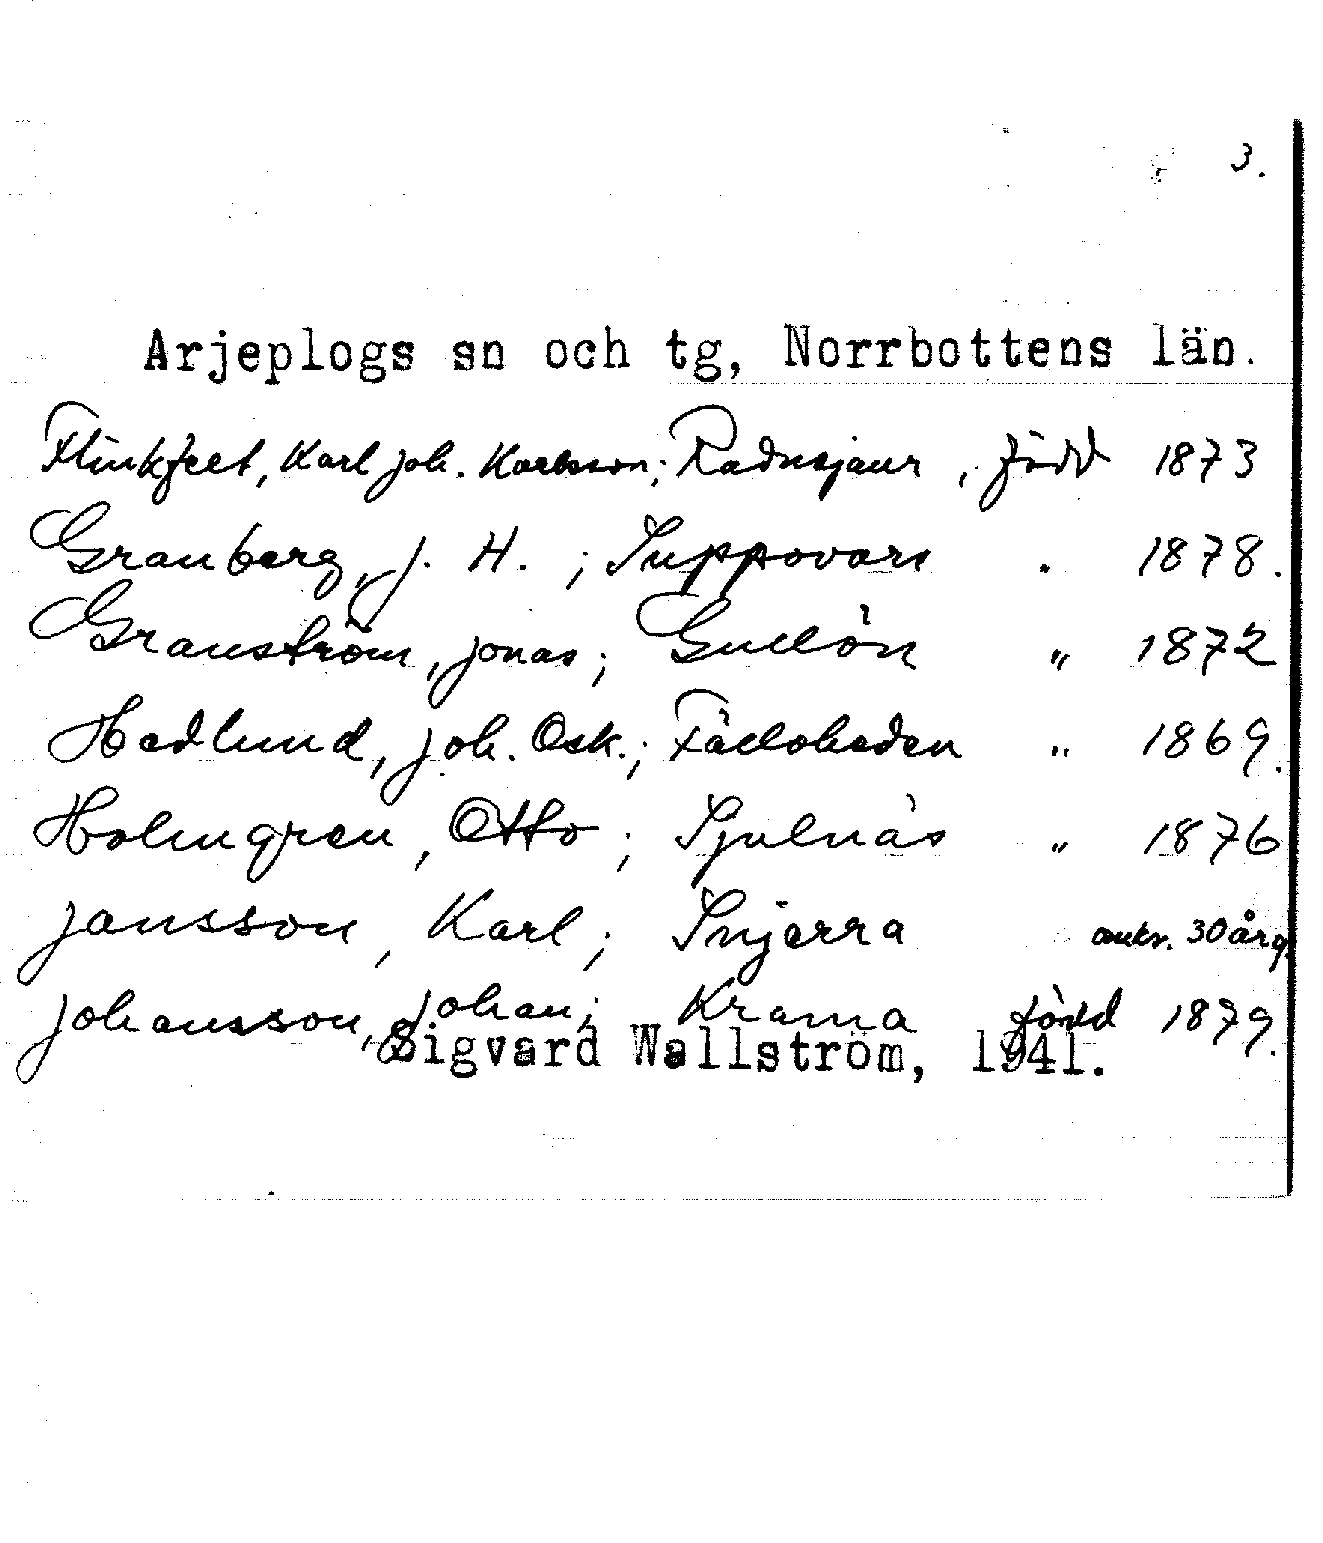 3.
Arjeplogs sn och tg, Norrbottens län.
Flinkfelt, Karl Joh. Karlsson; Radnejaur, född 1873
Granberg, J. H.; Suppovare " 1878.
Granström, Jonas; Gullön " 1872
Hedlund, Joh. Osk.; Fälloheden " 1869.
Holmgren, Otto; Sjulnäs " 1876
Jansson, Karl; Snjerra omkr. 30 årg.
Johansson, Johan; Krama född 1879.
Sigvard Wallström, 1941.